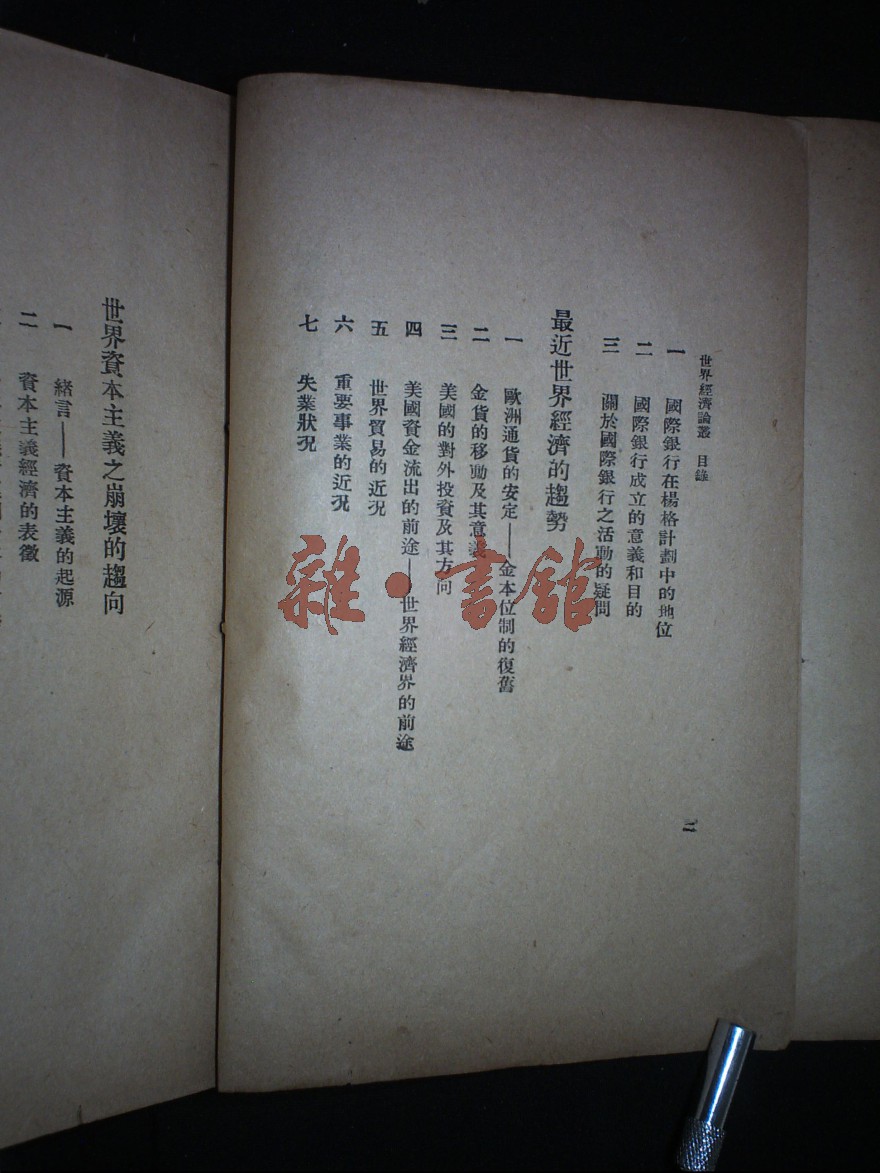 世界經濟論叢　目錄
一　國際銀行在楊格計劃中的地位
二　國際銀行成立的意義和目的
三　關於國際銀行之活動的疑問
最近世界經濟的趨勢
一　歐洲通貨的安定——金本位制的復舊
二　金貨的移動及其意義
三　美國的對外投資及其方向
四　美國資金流出的前途——世界經濟界的前途
五　世界貿易的近況
六　重要事業的近況
七　失業狀況
二
世界資本主義之崩壞的趨向
一　緒言——資本主義的起源
二　資本主義經濟的表徵
雜·書館